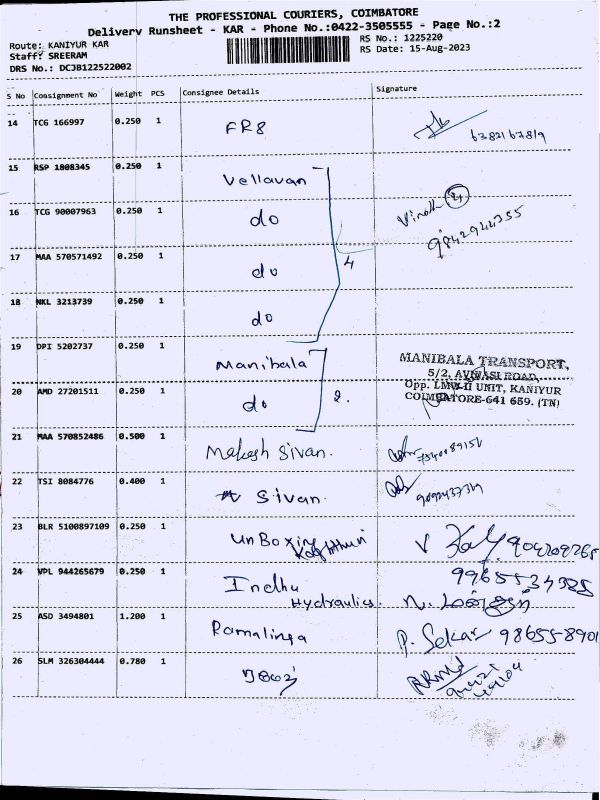 THE PROFESSIONAL COURIERS, COIMBATORE
Delivery Runsheet - KAR - Phone No.:0422-3505555 - Page No.:2
Route: KANIYUR KAR
RS No.: 1225220
Staff: SREERAM
RS Date: 15-Aug-2023
DRS No.: DCJB122522002
S No Consignment No Weight PCS Consignee Details Signature
14 TCG 166997 0.250 1 FR8
15 RSP 1808345 0.250 1 Vellavan
16 TCG 90007963 0.250 1 do
9842944355
17 MAA 570571492 0.250 1 do 4
18 NKL 3213739 0.250 1 do
19 DPI 5202737 0.250 1 Manibala
MANIBALA TRANSPORT,
5/2, AVINASI ROAD,
20 AMD 27201511 0.250 1 do 2.
Opp. LMW-II UNIT, KANIYUR
COIMBATORE-641 659. (TN)
21 MAA 570852486 0.500 1 Mahesh Sivan.
22 TSI 8084776 0.400 1 Sivan.
23 BLR 5100897109 0.250 1 UnBoxing
24 VPL 944265679 0.250 1 Indhu Hydraulics.
25 ASD 3494801 1.200 1 Ramalinga P. Sekar 98655-8901
26 SLM 326304444 0.780 1